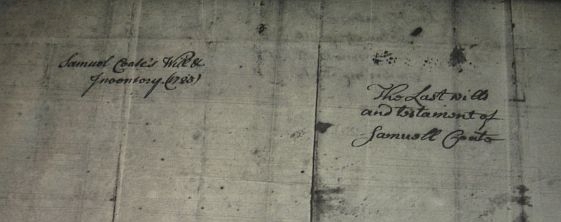 Samuel Coate's Will &
Inventory (1723)
The Last wills
and testament of
Samuell Coate